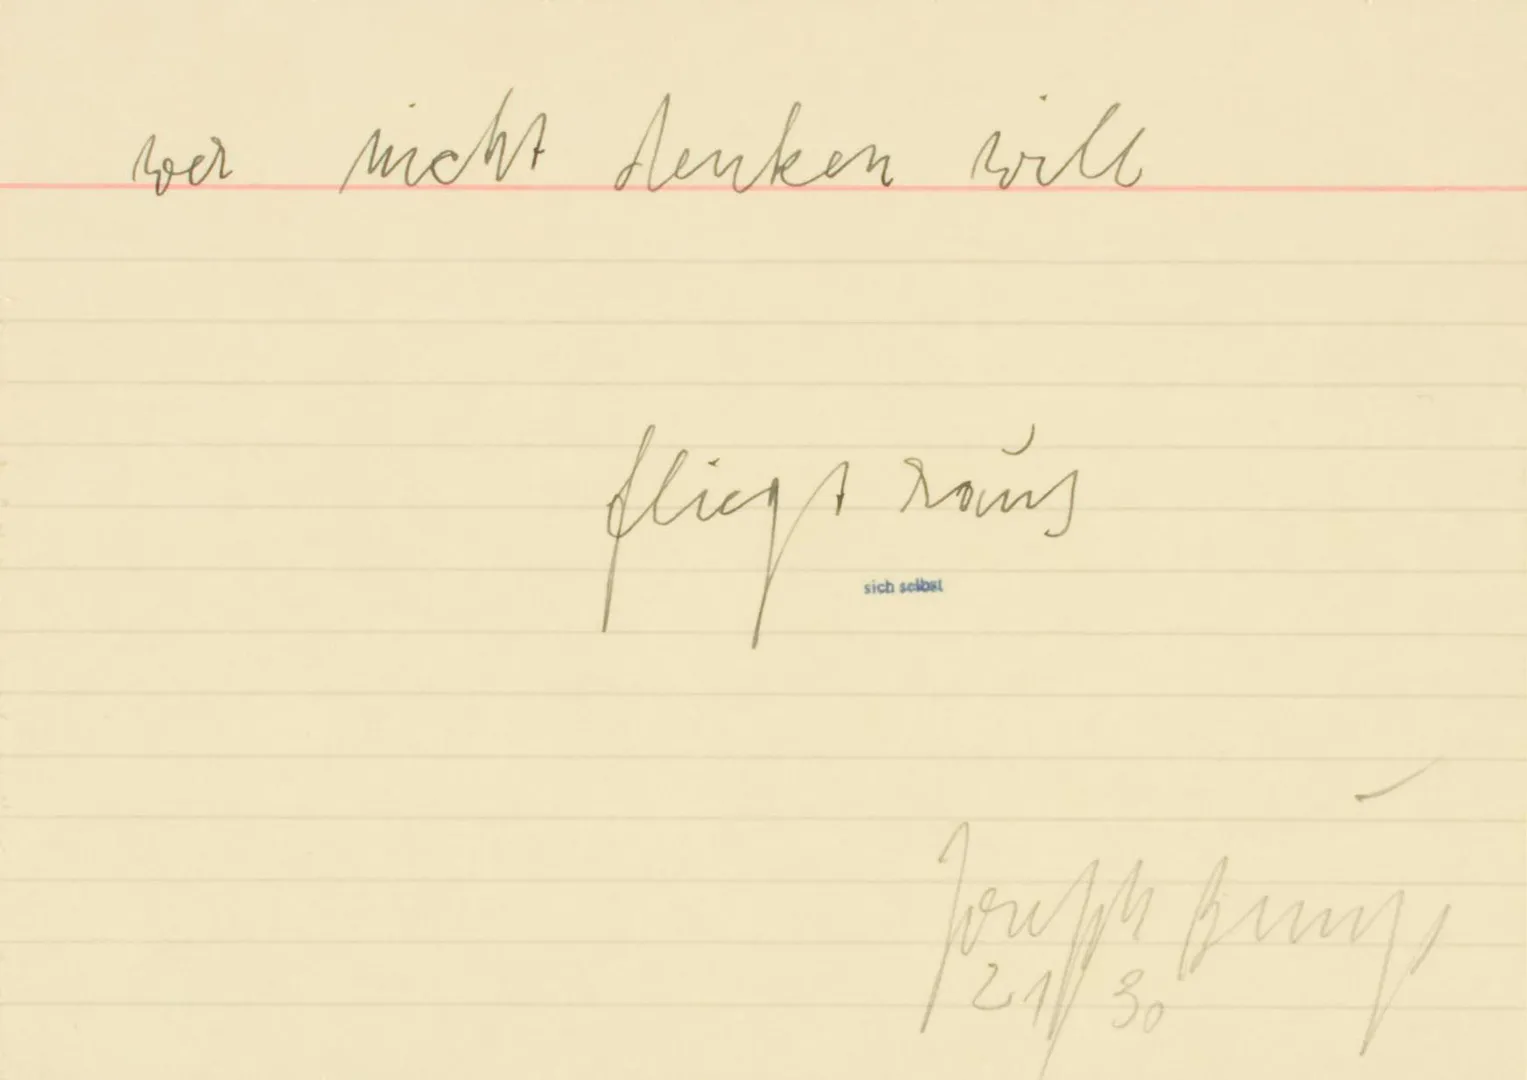 wer nicht denken will
fliegt raus
sich selbst
Joseph Beuys
21/30